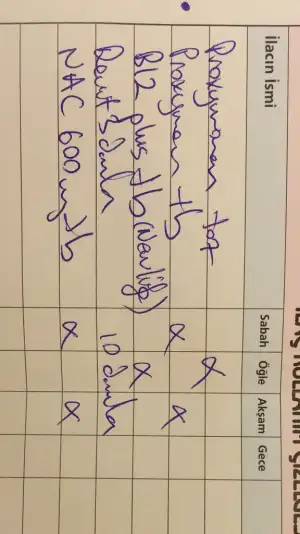 İLAÇ KULLANIM ÇİZELGESİ
İlacın İsmi Sabah Öğle Akşam Gece
Proxymonen toz x
Proxymonen tb x x
B12 plus tb (Newlife) x
Devit 3 damla 10 damla
NAC 600 mg tb x x